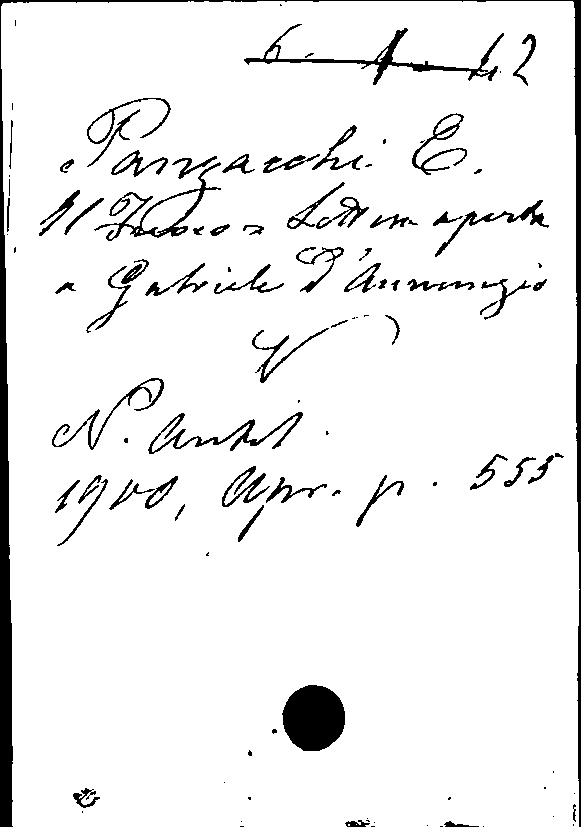 6. 1. 42
Panzacchi E.
Il Fuoco = Lettera aperta
a Gabriele D'Annunzio
V
N. Antol.
1900, Apr. p. 555